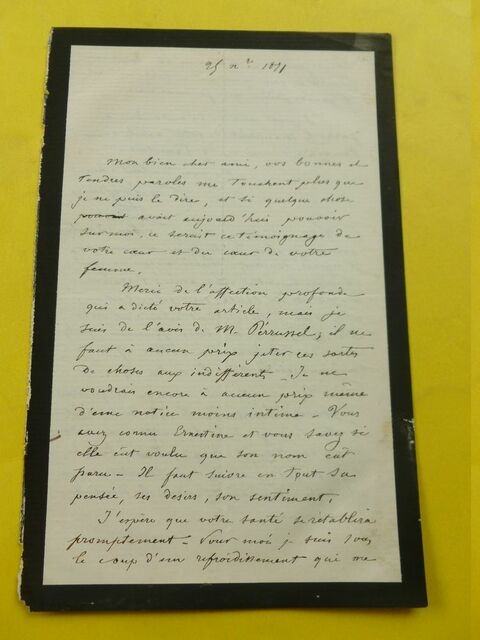 25 nbre 1871
Mon bien cher ami, vos bonnes et
tendres paroles me touchent plus que
je ne puis le dire, et si quelque chose
avait aujourd'hui pouvoir
sur moi, ce serait ce témoignage de
votre cœur et du cœur de votre
femme.
Merci de l'affection profonde
qui a dicté votre article, mais je
suis de l'avis de M. Pérrussel, il ne
faut à aucun prix jeter ces sortes
de choses aux indifférents - Je ne
voudrais encore à aucun prix même
d'une notice moins intime - Vous
avez connu Ernestine et vous savez si
elle eut voulu que son nom eût
paru - Il faut suivre en tout sa
pensée, ses désirs, son sentiment.
J'espère que votre santé se rétablira
promptement - Pour moi je suis sous
le coup d'un refroidissement qui me